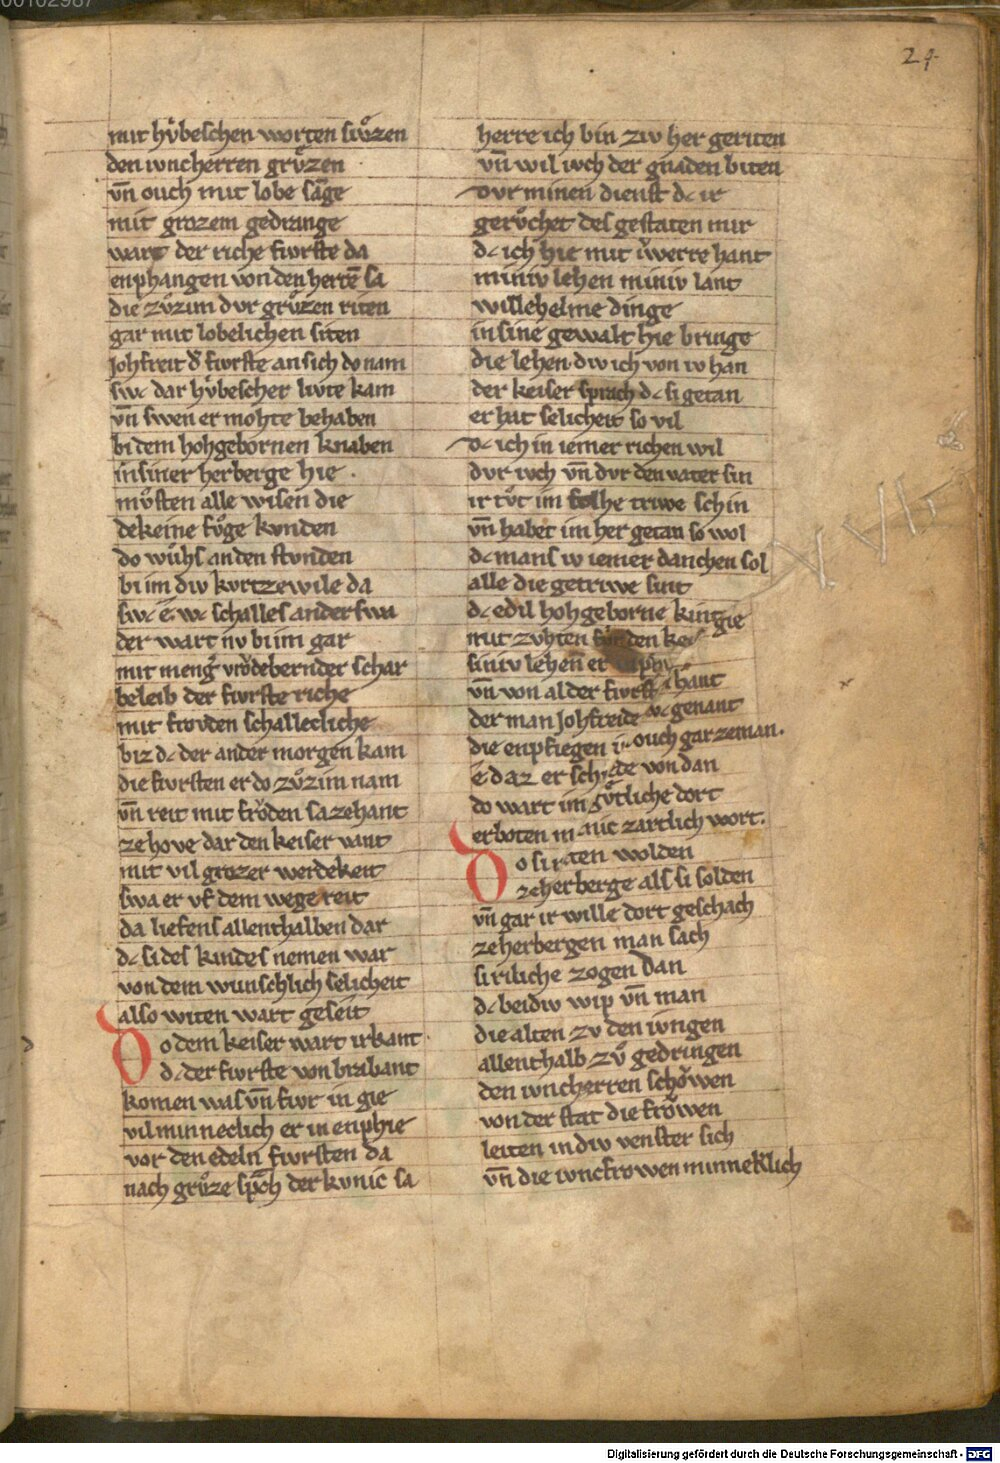 00102987
24
mit hv̍beschen worten swͦzen
den iuncherren grvͦzen
vn̄ ouch mit lobe sāge
mit grozem gedrange
wart der riche fvrste da
enphangen von den herrē sa
die zvͦzim dvr grvͦzen riten
gar mit lobelichen siten
Johfreit d͛ fvrste an sich do nam
swc dar hv̍bescher livte kam
vn̄ swen er mohte behaben
bi dem hohgebornen knaben
in siner herberge hie
mvͦsten alle wisen die
dekeine fvͦge kvnden
do wvͦhs an den stvnden
bi im div kvrtzewile da
swc e wc schalles anderswa
der wart nv bi im gar
mit meng͛ vrͦdebernder schar
beleib der fvrste riche
mit frovden schallecliche
biz dc der ander morgen kam
die fvrsten er do zvͦzim nam
vn̄ reit mit frͦden sa zehant
ze hove dar den keiser vant
mit vil grozer werdekeit
swa er vf dem wege reit
da liefens allenthalben dar
dc si des kindes nemen war
von dem wunschlich selicheit
also witen wart geseit
Do dem keiser wart irkant
dc der fvrste von brabant
komen was vn̄ fvr in gie
vil minneclich er in enphie
vor den edeln fvrsten da
nach grvͦze sprach der kvnic sa
herre ich bin ziv her geriten
vn̄ wil ivch der gnaden biten
dvr minen dienst dc ir
gervͦchet des gestaten mir
dc ich hie mit iwerre hant
miniv lehen miniv lant
willehelme dinge
in sine gewalt hie bringe
die lehen div ich von iv han
der keiser sprach dc si getan
er hat selicheit so vil
dc ich in iemer richen wil
dvr ivch vn̄ dvr den vater sin
ir tvͦt im solhe triwe schin
vn̄ habet im her getan so wol
dc mans iv iemer danchen sol
alle die getriwe sint
dc edil hohgeborne kint gie
mit zvhten den kei
siniv lehen er
vn̄ von al der fvrst hant
der man Johfreide wc genant
die enpfiegen in ouch gar zeman.
e daz er schide von dan
do wart im gvͦtliche dort
erboten manic zartlich wort.
Do si riten wolden
ze herberge als si solden
vn̄ gar ir wille dort geschach
ze herbergen man sach
si riliche zogen dan
dc beidiv wip vn̄ man
die alten zv den ivngen
allenthalb zvͦ gedringen
den iuncherren schoͮwen
von der stat die froͮwen
leiten in div venster sich
vn̄ die ivncfrowen minneklich
XVII
Digitalisierung gefördert durch die Deutsche Forschungsgemeinschaft - DFG